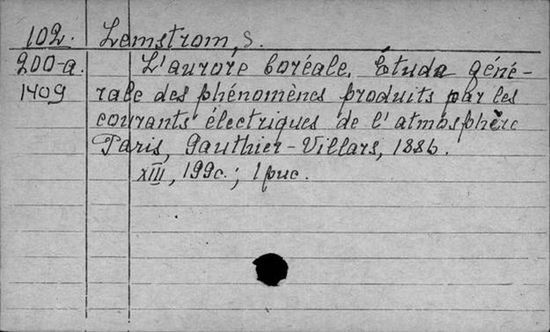 102. Lemstrom, S.
200-a. L'aurore boréale. Étude géné-
1409 rale des phénomènes produits par les
courants électriques de l'atmosphère
Paris, Gauthier-Villars, 1886.
XIII, 199c.; 1 рис.